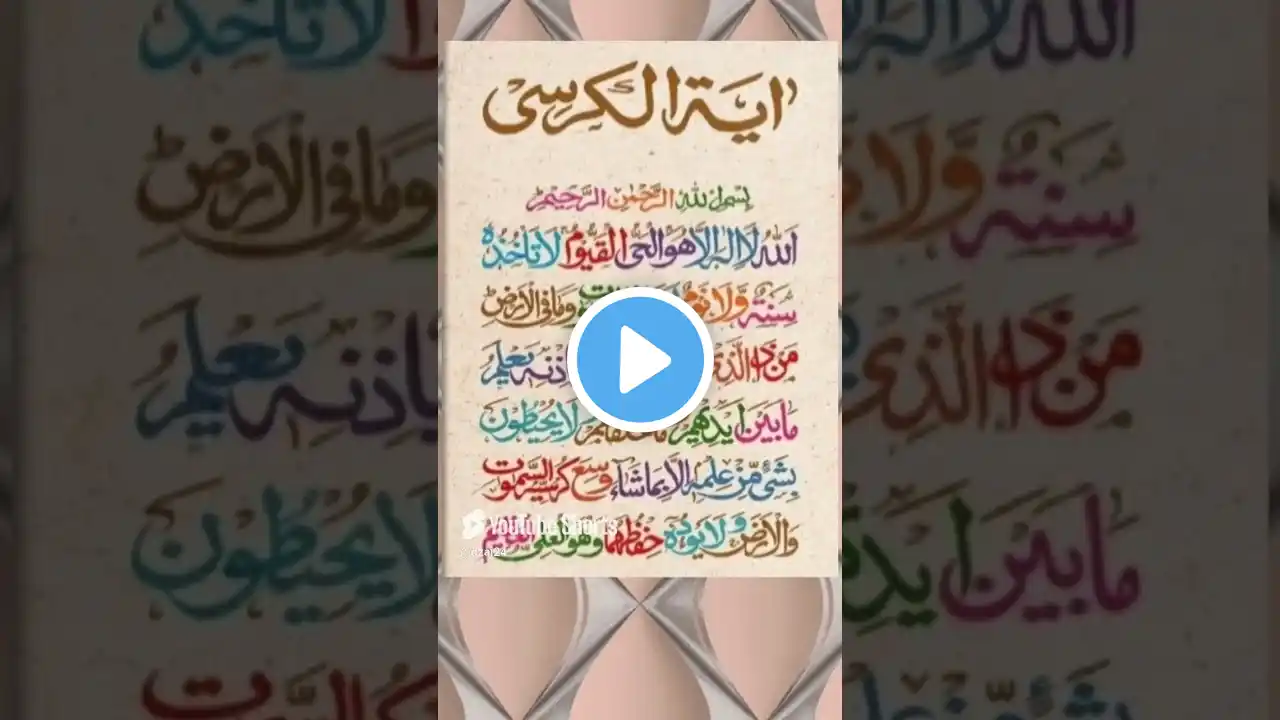 اية الكرسى
بسم الله الرحمن الرحيم
الله لا اله الا هو الحي القيوم لا تاخذه
سنة ولا نوم وما في الارض
من ذا الذي باذنه يعلم
ما بين ايديهم لا يحيطون
بشيء من علمه الا بما شاء وسع كرسيه السموت
والارض ولا يوده حفظهما وهو العلي العظيم
YouTube Shorts